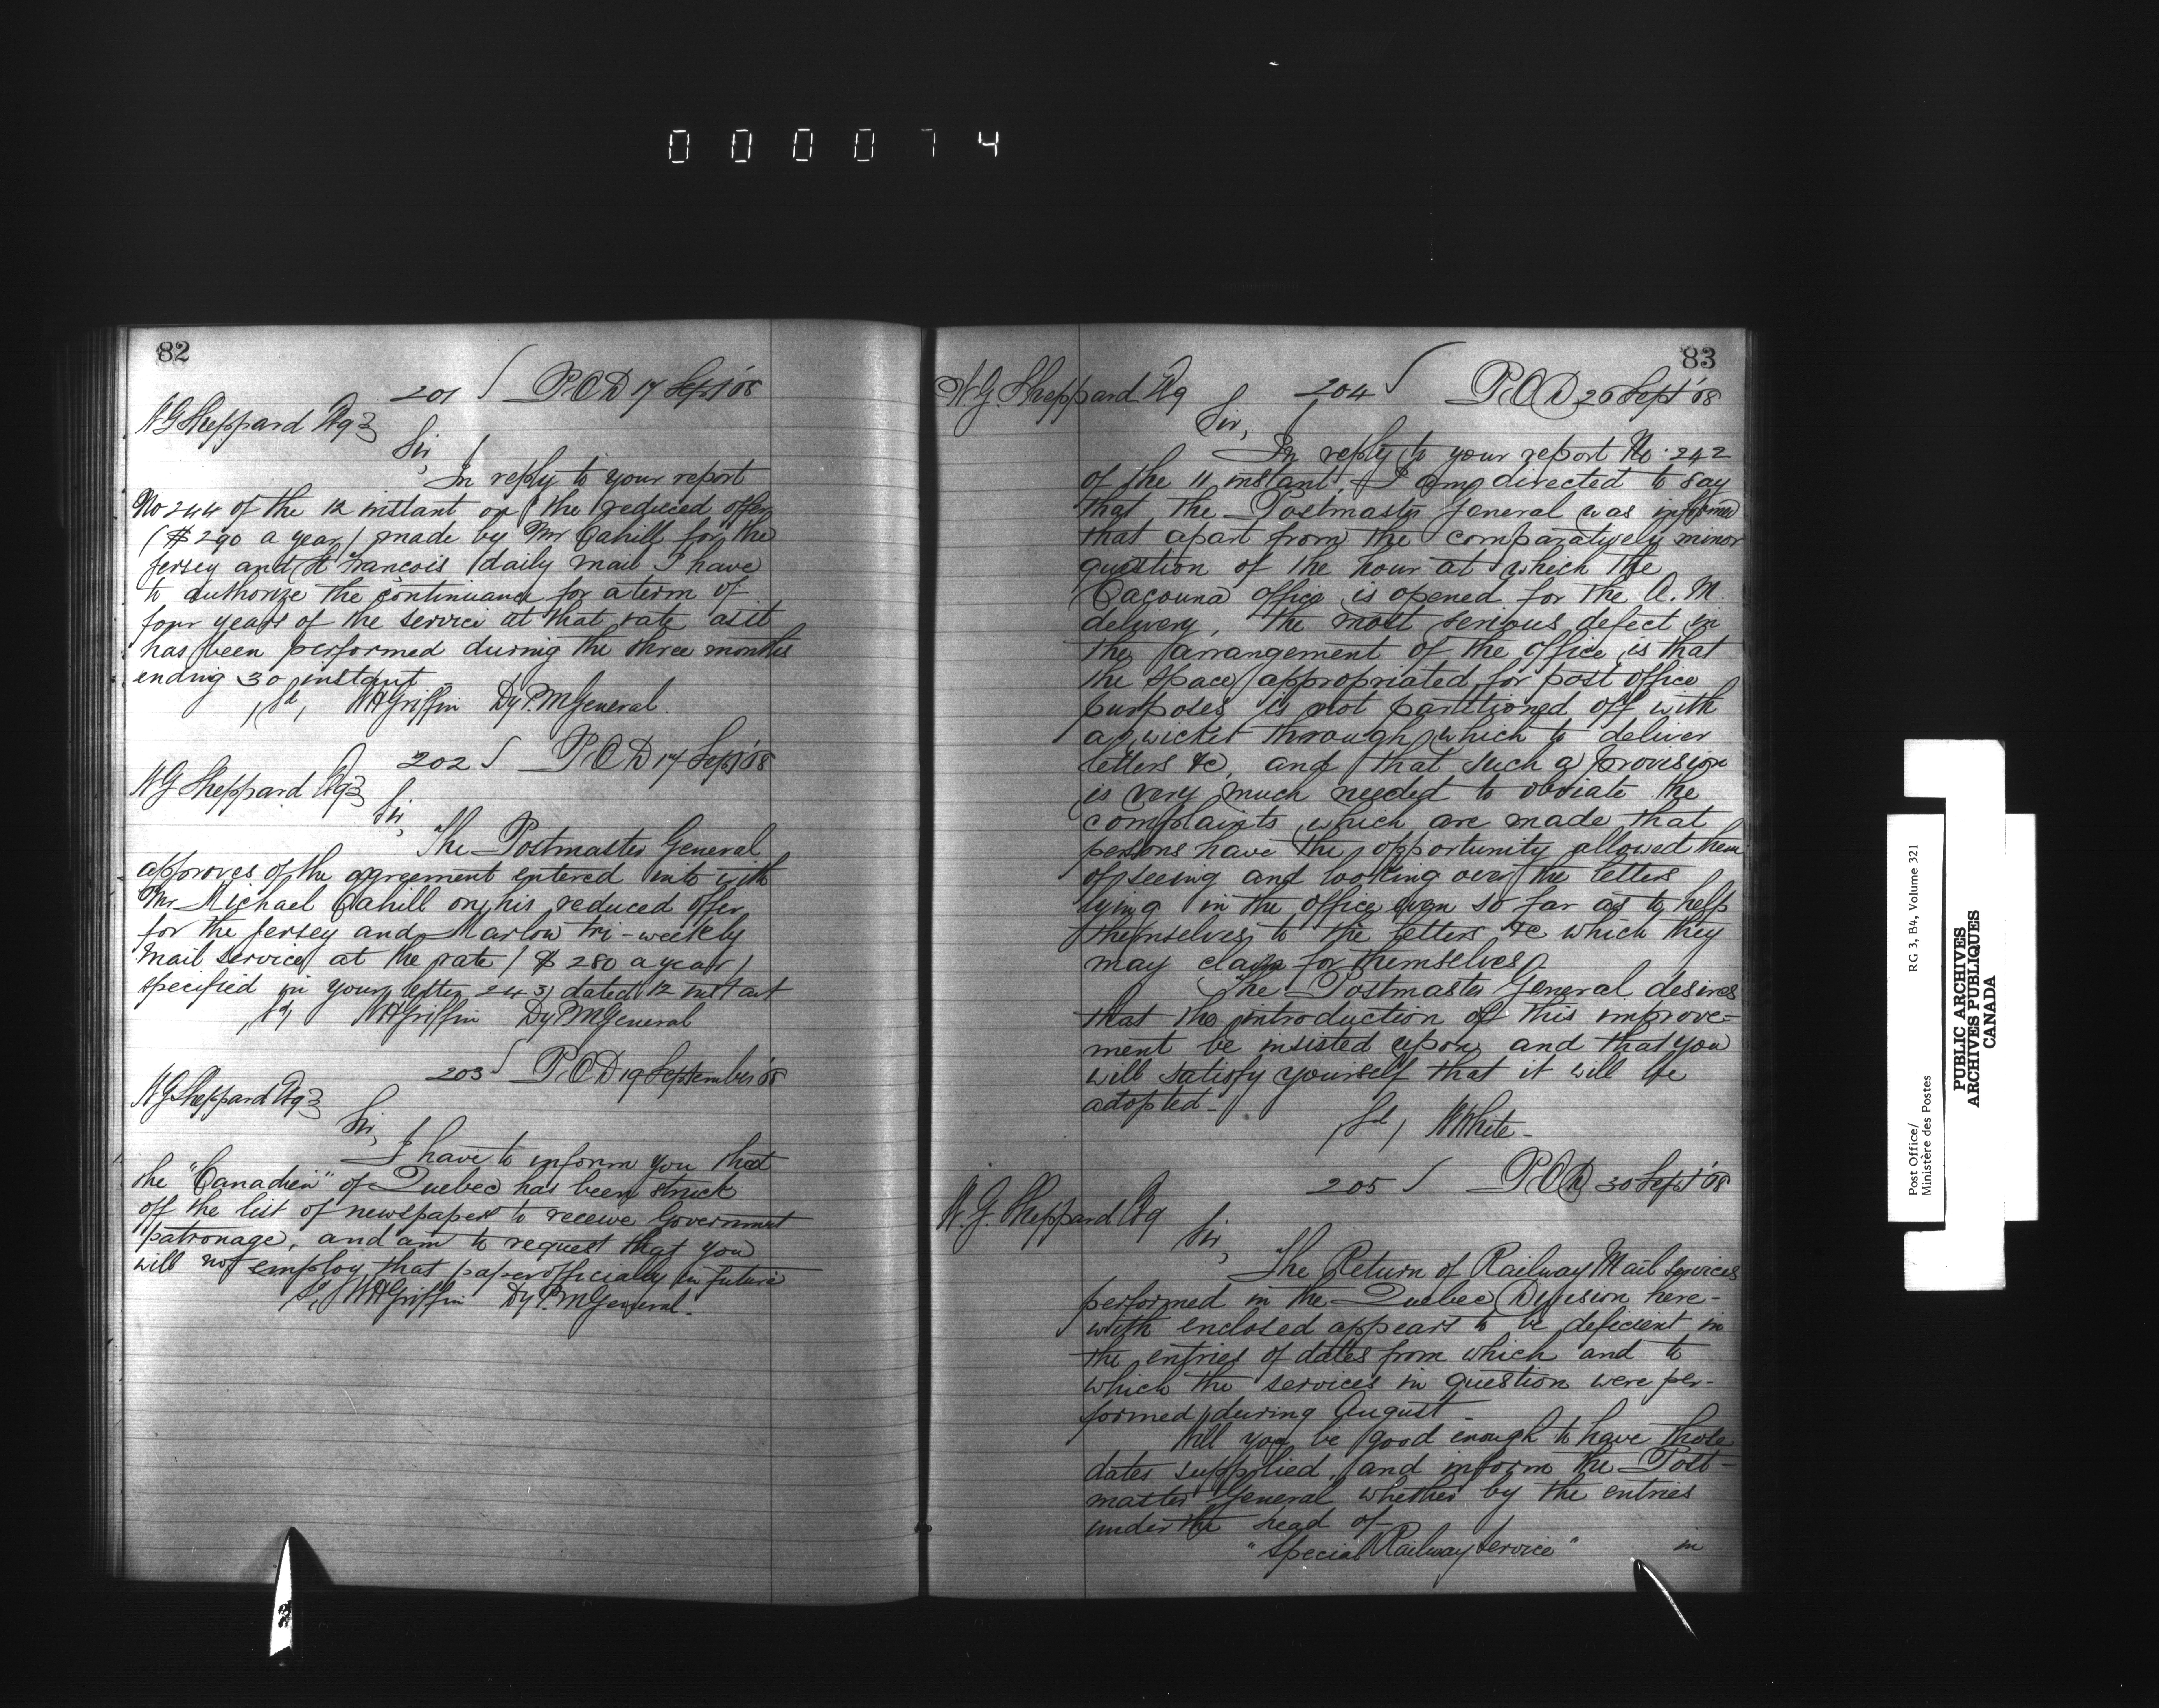 000074
82
201 P.O.D 17 Sept '68
W G Sheppard Esq
Sir,
In reply to your report
No 244 of the 12 instant on the reduced offer
($290 a year) made by Mr Cahill for the
Jersey and St Francois daily mail I have
to authorize the continuance for a term of
four years of the service at that rate as it
has been performed during the three months
ending 30 instant
(sd) WHGriffin Dy P.MGeneral.
202 P.O.D 17 Sept '68
W G Sheppard Esq
Sir,
The Postmaster General
approves of the agreement entered into with
Mr Michael Cahill on his reduced offer
for the Jersey and Marlow tri-weekly
Mail service at the rate ($280 a year)
specified in your letter 243 dated 12 instant
(sd) WHGriffin Dy PMGeneral
203 P.O.D 19 September '68
W G Sheppard Esq
Sir,
I have to inform you that
the "Canadien" of Quebec has been struck
off the list of newspapers to receive Government
patronage, and am to request that you
will not employ that paper officially in future
Sd, WHGriffin Dy P.MGeneral.
83
W. G. Sheppard Esq 204 P.O.D 26 Sept '68
Sir,
In reply to your report No. 242
of the 11 instant, I am directed to say
that the Postmaster General was informed
that apart from the comparatively minor
question of the hour at which the
Cacouna office is opened for the A.M.
delivery, the most serious defect in
the arrangement of the office is that
the space appropriated for post office
purposes is not partitioned off with
a wicket through which to deliver
letters &c, and that such a provision
is very much needed to obviate the
complaints which are made that
persons have the opportunity allowed them
of seeing and looking over the letters
lying in the office even so far as to help
themselves to the letters &c which they
may claim for themselves.
The Postmaster General desires
that the introduction of this improve=
ment be insisted upon and that you
will satisfy yourself that it will be
adopted-
(Sd) W White-
205 P.O.D 30 Sept '68
W. G. Sheppard Esq
Sir,
The Return of Railway Mail services
performed in the Quebec Division here-
with enclosed appears to be deficient in
the entries of dates from which and to
which the services in question were per-
formed during August-
Will you be good enough to have those
dates supplied, and inform the Post-
master General whether by the entries
under the head of-
"Special Railway Service" in
Post Office/
Ministère des Postes
RG 3, B4, Volume 321
PUBLIC ARCHIVES
ARCHIVES PUBLIQUES
CANADA